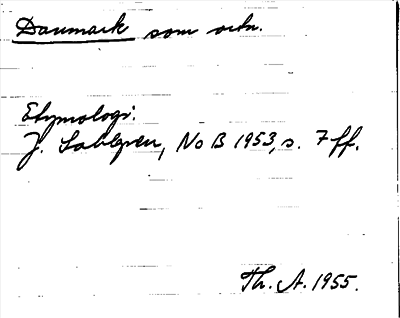 Danmark som ortn.
Etymologi:
J. Sahlgren, NoB 1953, s. 7 ff.
Th. A. 1955.